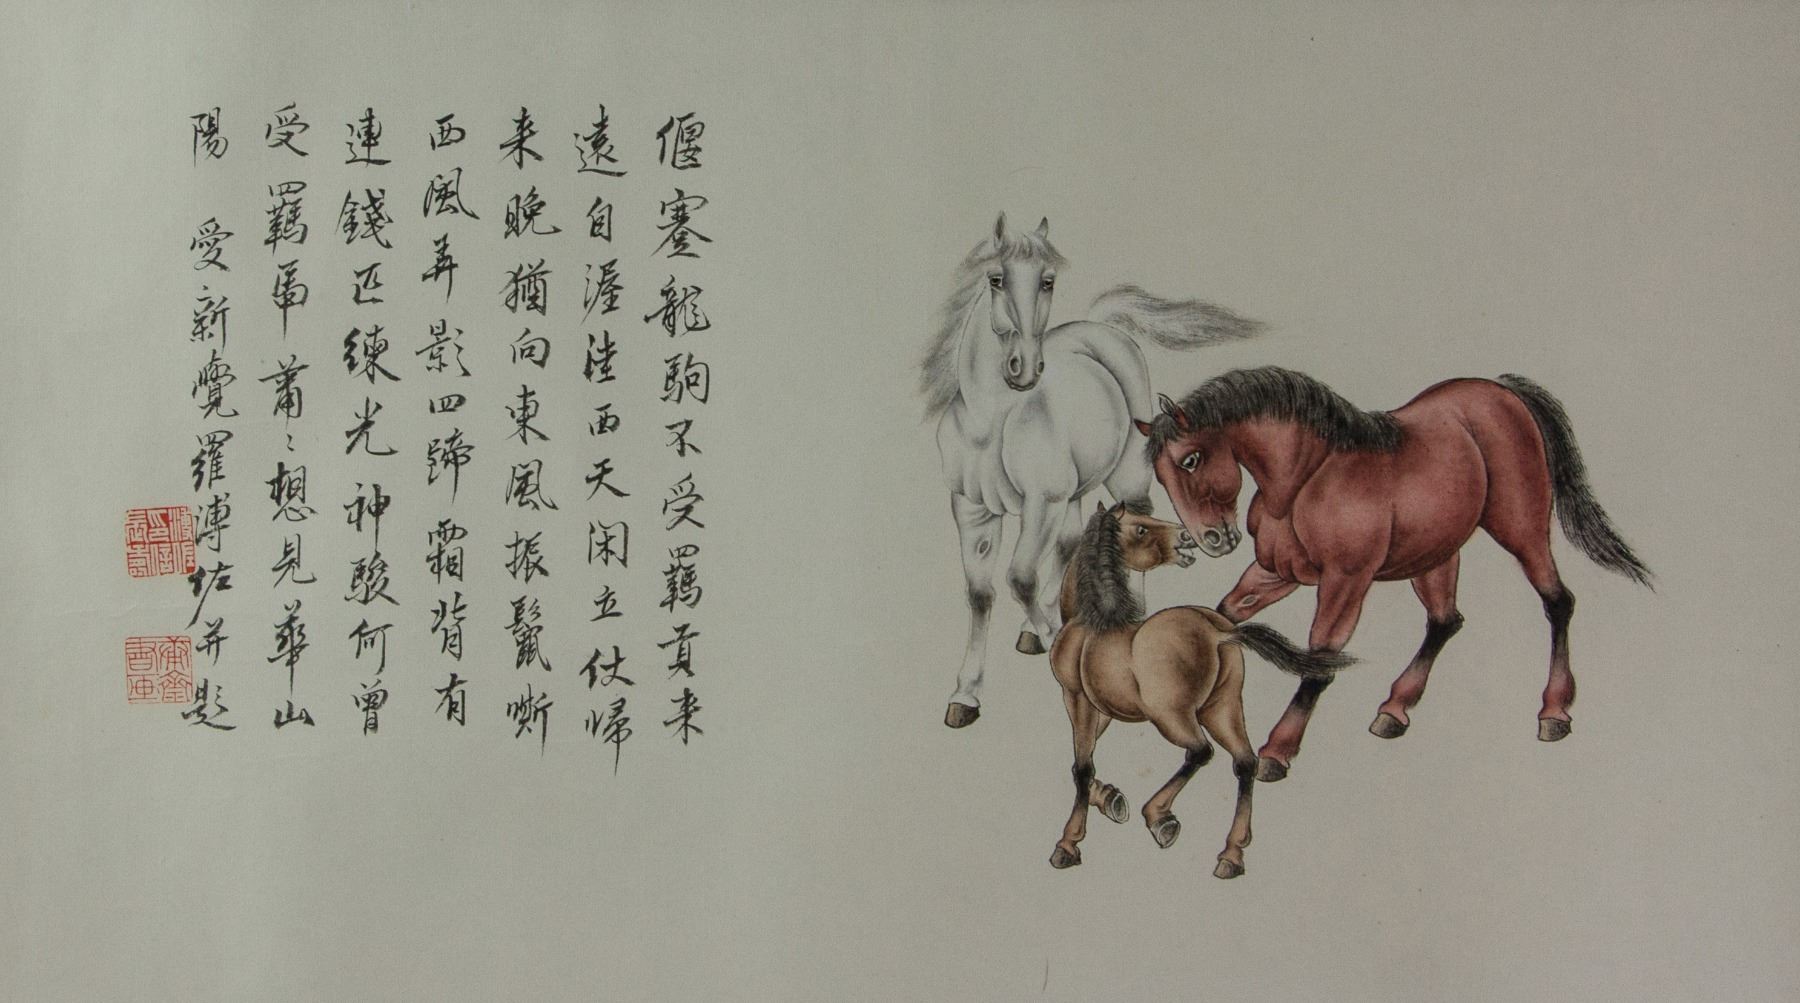 偃蹇龍駒不受羈貢来
遠自渥洼西天閑立仗歸
来晚猶向東風振鬣嘶
西風弄影四蹄霜背有
連錢匹練光神駿何曾
受羈馬蕭〻想見華山
陽 愛新覺羅溥佐并題